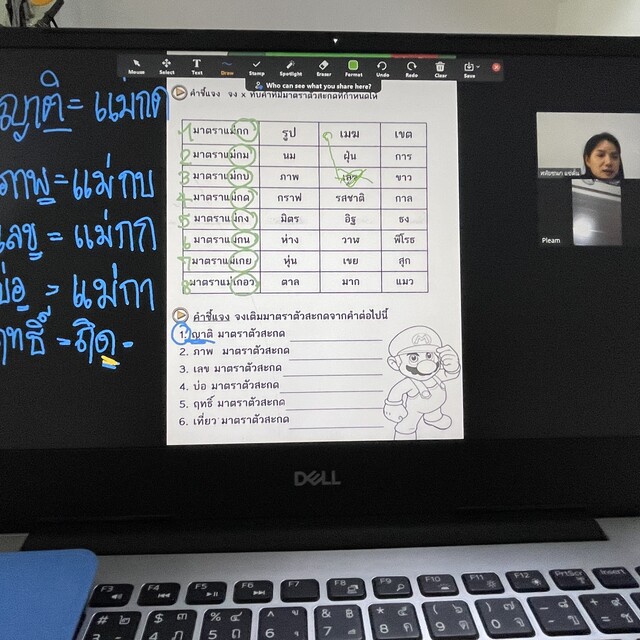 Mouse Select Text Draw Stamp Spotlight Eraser Format Undo Redo Clear Save
Who can see what you share here?
คำชี้แจง จง x ทับคำที่มีมาตราตัวสะกดที่กำหนดให้
1 มาตราแม่กก รูป เมฆ เขต
2 มาตราแม่กม นม ฝุ่น การ
3 มาตราแม่กบ ภาพ เลข ขาว
4 มาตราแม่กด กราฟ รสชาติ กาล
5 มาตราแม่กง มิตร อิฐ ธง
6 มาตราแม่กน ห่าง วาฬ พิโรธ
7 มาตราแม่เกย หุ่น เขย สุก
8 มาตราแม่เกอว ตาล มาก แมว
คำชี้แจง จงเติมมาตราตัวสะกดจากคำต่อไปนี้
1. ญาติ มาตราตัวสะกด
2. ภาพ มาตราตัวสะกด
3. เลข มาตราตัวสะกด
4. บ่อ มาตราตัวสะกด
5. ฤทธิ์ มาตราตัวสะกด
6. เที่ยว มาตราตัวสะกด
ญาติ = แม่กด
ภาพ = แม่กบ
เลข = แม่กก
บ่อ = แม่กา
ฤทธิ์ = ถิด =
M
Pleam
DELL
F3 F4 F5 F6 F7 F8 F9 F10 F11 F12 PrtScr Insert